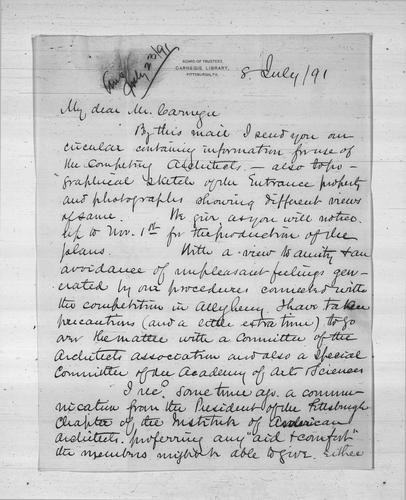 Ansd
July 23/91
BOARD OF TRUSTEES
CARNEGIE LIBRARY,
PITTSBURGH, PA.
8 July/91
My dear Mr. Carnegie
By this mail I send you our
circular containing information for use of
the Competing Architects — also topo-
graphical sketch of the Entrance property
and photographs showing different views
of same. We give as you will notice
up to Nov. 1st for the production of the
plans. With a view to amity & an
avoidance of unpleasant feelings gen-
erated by our procedures connected with
the competition in Allegheny I have taken
precautions (and a little extra time) to go
over the matter with a Committee of the
Architects association and also a Special
Committee of the Academy of Art & Sciences
I recd. some time ago a commu-
nication from the President of the Pittsburgh
Chapter of the Institute of American
Architects. proferring any "aid & comfort"
the members might be able to give. Either